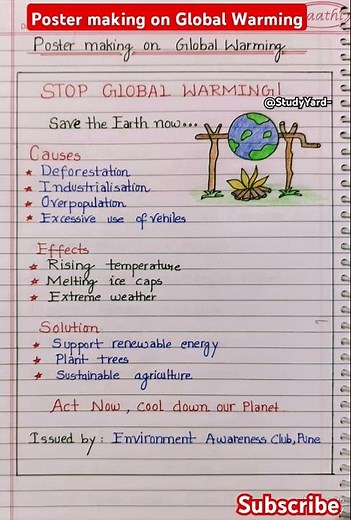 Poster making on Global Warming
Poster making on Global Warming
STOP GLOBAL WARMING!
@StudyYard-
Save the Earth now...
Causes
★ Deforestation
★ Industrialisation
★ Overpopulation
★ Excessive use of vehiles
Effects
★ Rising temperature
★ Melting ice caps
★ Extreme weather
Solution
★ Support renewable energy
★ Plant trees
★ Sustainable agriculture
Act Now, cool down our Planet
Issued by: Environment Awareness Club, Pune
Subscribe